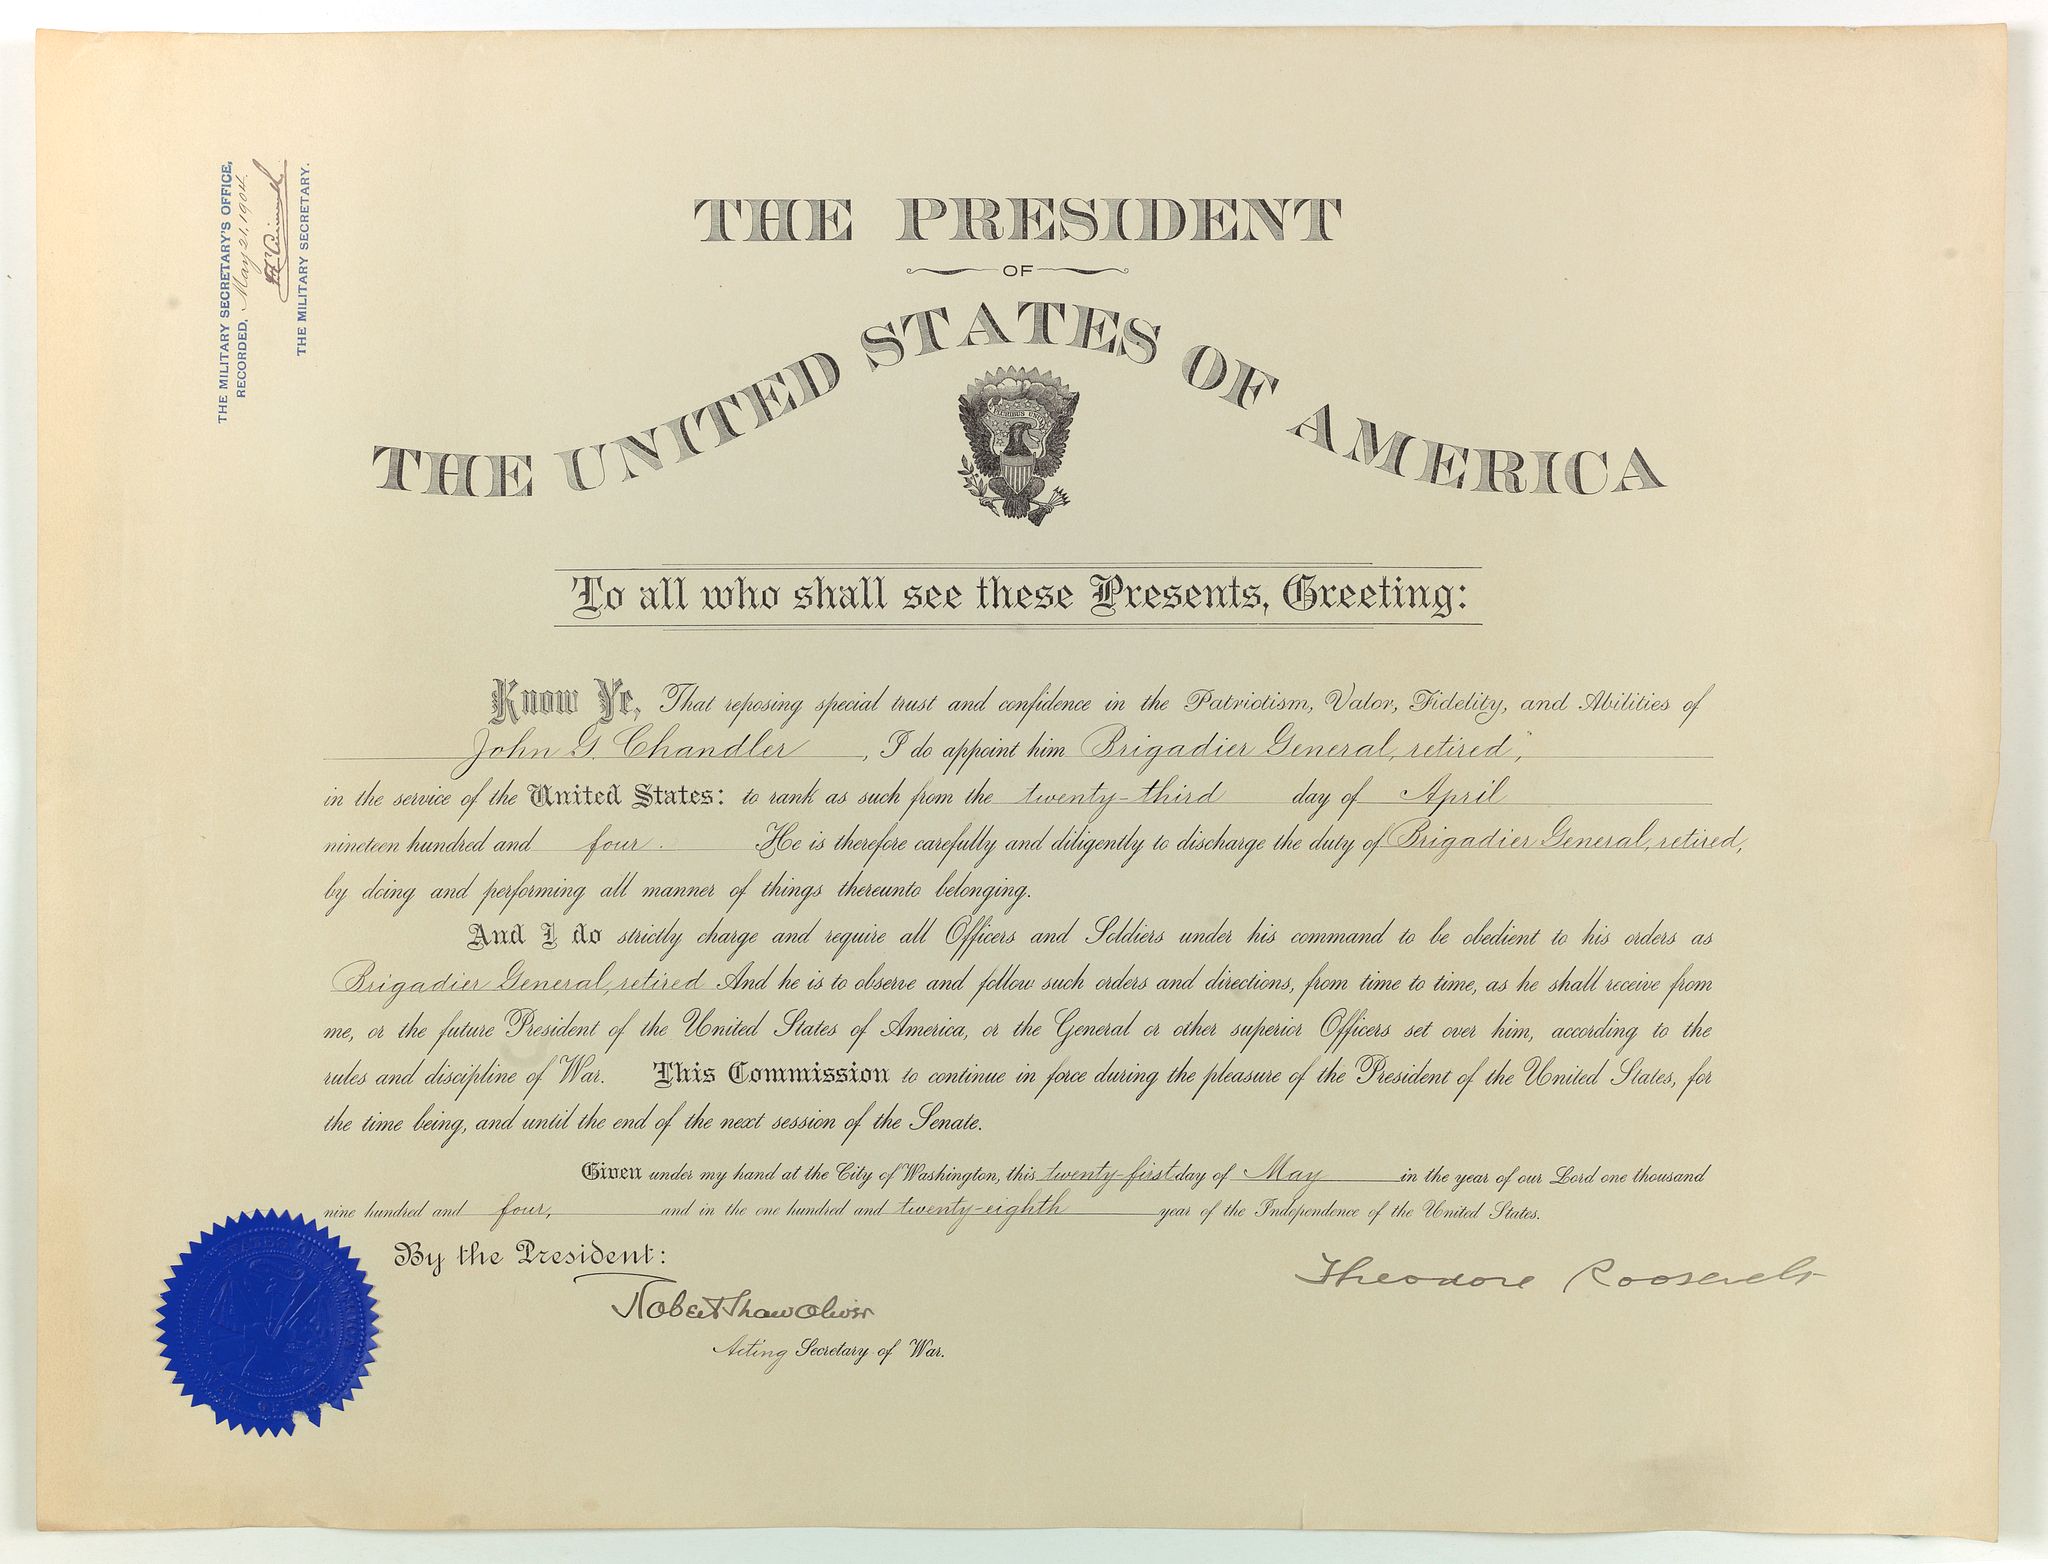 THE MILITARY SECRETARY'S OFFICE,
RECORDED, May 21, 1904.
THE MILITARY SECRETARY.
THE PRESIDENT
OF
THE UNITED STATES OF AMERICA
PLURIBUS UNUM
To all who shall see these Presents, Greeting:
Know Ye, That reposing special trust and confidence in the Patriotism, Valor, Fidelity, and Abilities of
John G. Chandler, I do appoint him Brigadier General, retired,
in the service of the United States: to rank as such from the twenty-third day of April
nineteen hundred and four. He is therefore carefully and diligently to discharge the duty of Brigadier General, retired,
by doing and performing all manner of things thereunto belonging.
And I do strictly charge and require all Officers and Soldiers under his command to be obedient to his orders as
Brigadier General, retired And he is to observe and follow such orders and directions, from time to time, as he shall receive from
me, or the future President of the United States of America, or the General or other superior Officers set over him, according to the
rules and discipline of War. This Commission to continue in force during the pleasure of the President of the United States, for
the time being, and until the end of the next session of the Senate.
Given under my hand at the City of Washington, this twenty-first day of May in the year of our Lord one thousand
nine hundred and four, and in the one hundred and twenty-eighth year of the Independence of the United States.
By the President:
Theodore Roosevelt
Robert Shaw Oliver
Acting Secretary of War.